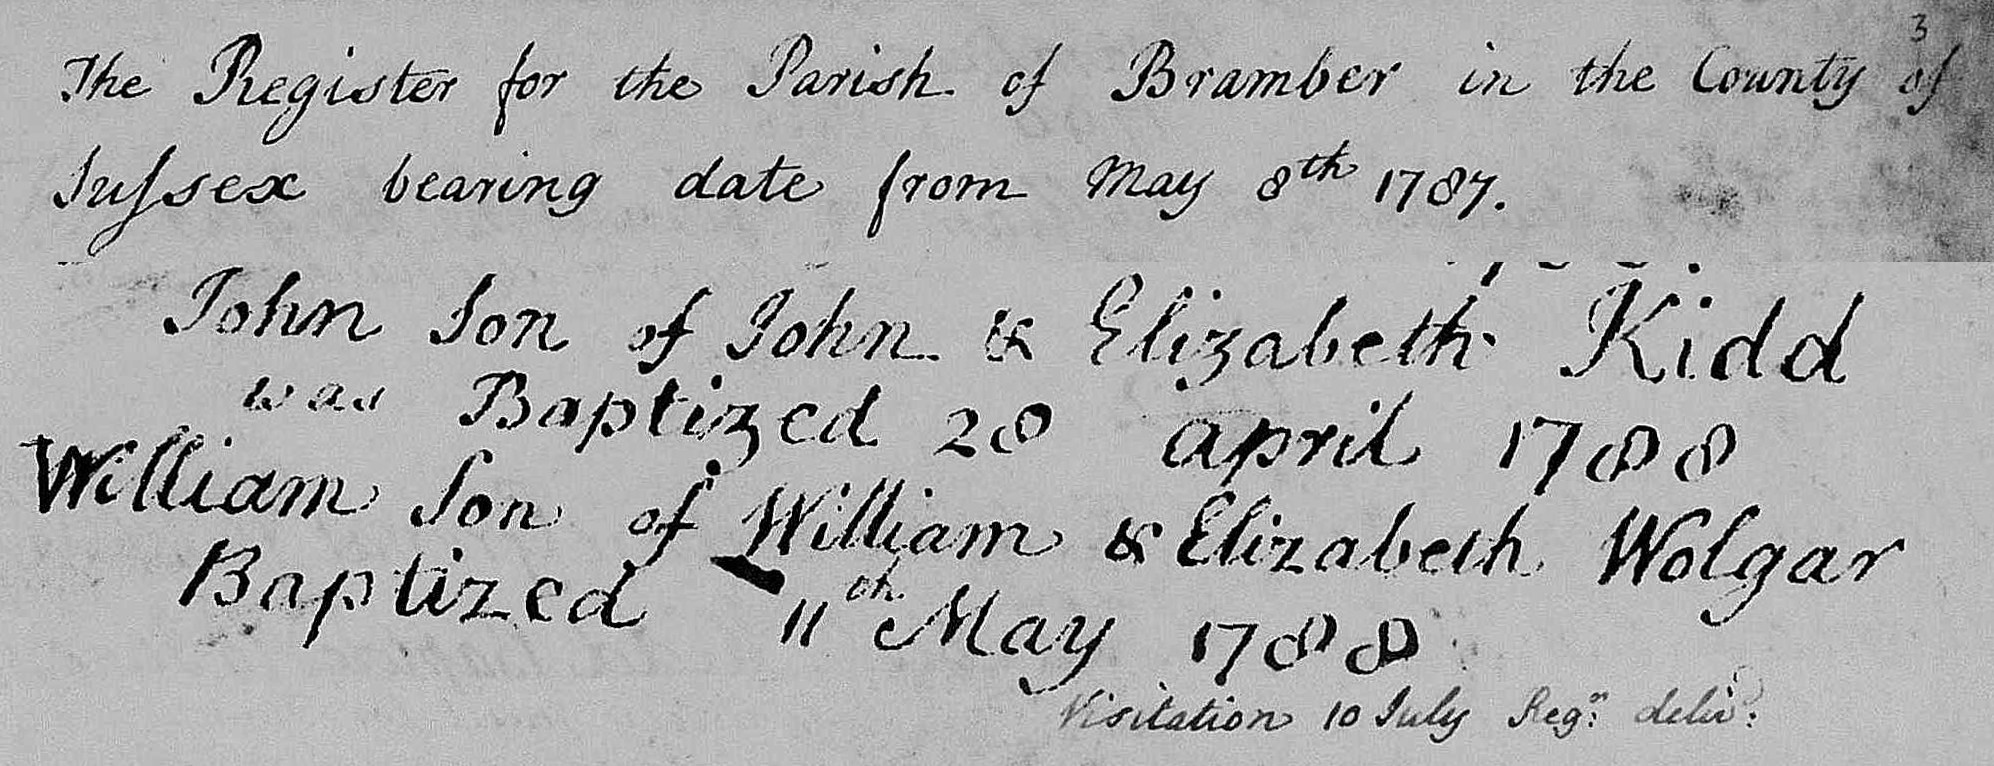 3
The Register for the Parish of Bramber in the County of
Suſsex bearing date from May 8th 1787.
John Son of John & Elizabeth Kidd
was Baptized 28 april 1788
William Son of William & Elizabeth Wolgar
Baptized 11th May 1788
Visitation 10 July Regrs: delivd: